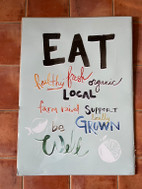 EAT
healthy fresh organic
LOCAL
farm raised SUPPORT
locally
be GROWN
Well